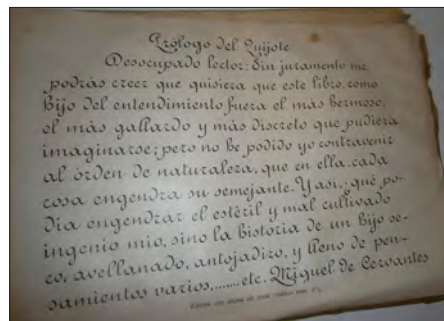 Prólogo del Quijote
Desocupado lector: Sin juramento me
podrás creer que quisiera que este libro, como
hijo del entendimiento fuera el más hermoso,
el más gallardo y más discreto que pudiera
imaginarse; pero no he podido yo contravenir
al órden de naturaleza, que en ella, cada
cosa engendra su semejante. Y así, ¿qué po-
día engendrar el estéril y mal cultivado
ingenio mío, sino la historia de un hijo se-
co, avellanado, antojadizo, y lleno de pen-
samientos varios,.......etc. Miguel de Cervantes